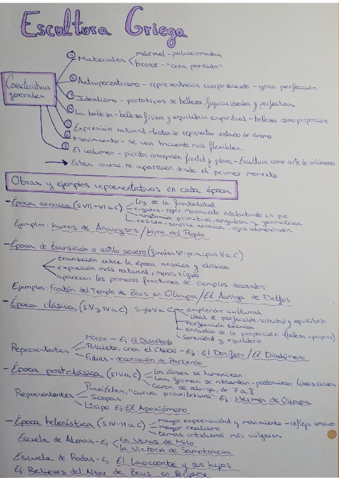 Escultura Griega
Características generales
① Materiales
mármol - policromadas
bronce - "cera perdida"
② Antropocentrismo - representación cuerpo desnudo - gran perfección
③ Idealismo - prototipos de belleza, figuras ideales y perfectas
④ La belleza - belleza física y equilibrio espiritual - belleza como proporción
⑤ Expresión natural - tratan de representar estado de ánimo
⑥ Movimiento - se van haciendo más flexibles
⑦ El volumen - pierden concepción frontal y plana - Escultura como arte de volúmenes
Estas características aparecen desde el primer momento
Obras y ejemplos representativos en cada época
- Época arcaica (s VII - VI a.C)
Ley de la frontalidad
rigidez - representación movimiento adelantando un pie
anatomía primitiva, angulosa y geométrica
rostro - sonrisa arcaica - ojos almendrados
Ejemplos: Kuros de Anavyssos / Kore del Peplo
- Época de transición o estilo severo (finales VI - principios V a.C)
transición entre la época arcaica y clásica
expresión más natural, menos rígida
aparecen los primeros frontones de templos decorados
Ejemplos: Frontón del Templo de Zeus en Olimpia / El Auriga de Delfos
- Época clásica (s V y IV a.C)
Siglo V a.C
esplendor cultural
ideal de perfección, serenidad y equilibrio
Perfección técnica
estudio de la proporción (belleza = proporción)
Serenidad y equilibrio
Representantes
Mirón - Ej: El Discóbolo
Policleto, crea el Canon - Ej: El Doríforo / El Diadúmeno
Fidias - decoración del Partenón
- Época postclásica (s IV a.C)
Los dioses se humanizan
Las formas se ablandan - predominan líneas curvas
Representantes
Praxíteles, "curva praxiteliana" Ej: Hermes de Olimpia
Scopas
Lisipo Ej: El Apoxiómeno
- Época helenística (s IV - II a.C)
mayor expresividad y movimiento - reflejo
mayor realismo
temas cotidianos, más vulgares
Escuela de Atenas - Ej
La Venus de Milo
La Victoria de Samotracia
Escuela de Rodas - Ej: El Laocoonte y sus hijos
Ej: Relieves del Altar de Zeus en Pérgamo